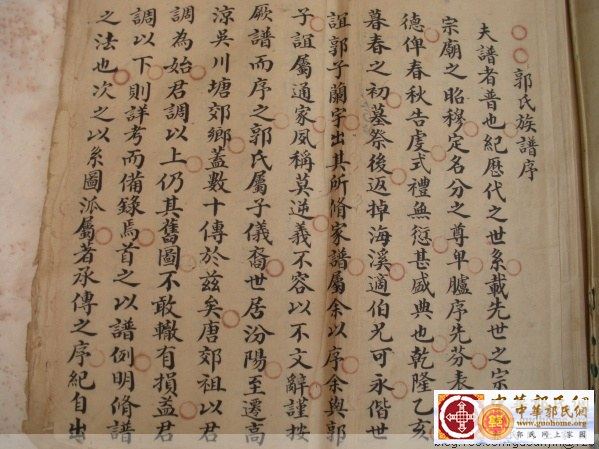 郭氏族譜序
夫譜者普也紀歷代之世系載先世之宗
宗廟之昭穆定名分之尊卑臚序先芬表
德俾春秋告虔式禮無愆甚盛典也乾隆乙亥
暮春之初墓祭後返掉海溪適伯兄可永偕世
誼郭子蘭宇出其所脩家譜屬余以序余與郭
子誼屬通家夙稱莫逆義不容以不文辭謹按
厥譜而序之郭氏屬子儀裔世居汾陽至遷高
涼吳川塘郊鄉蓋數十傳於茲矣唐郊祖以君
調為始君調以上仍其舊圖不敢輙有損益君
調以下則詳考而備錄焉首之以譜例明脩譜
之法也次之以系圖派屬著承傳之序紀自出
中華郭氏網
www.guohome.org
郭氏網上家園